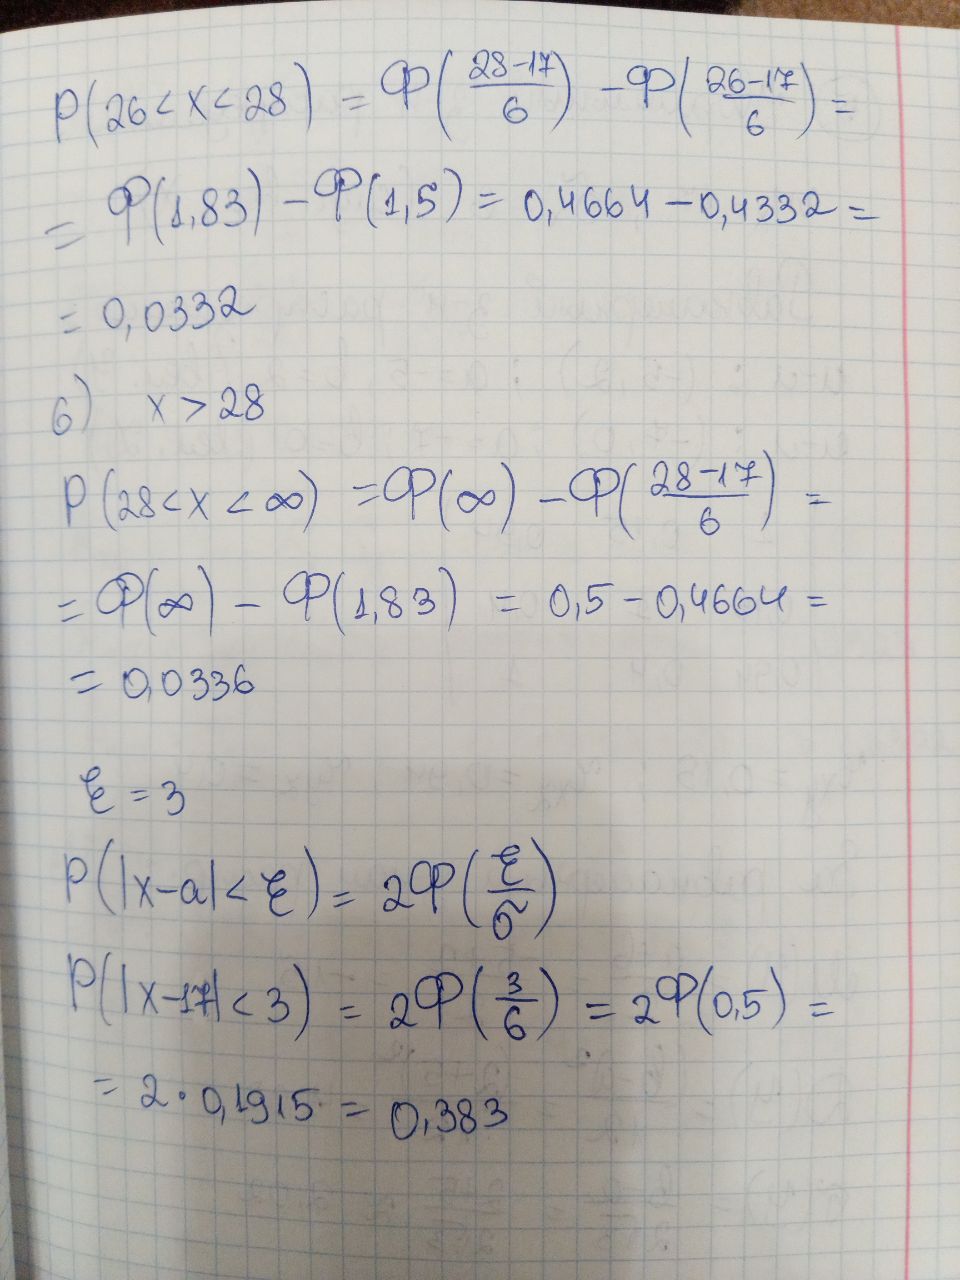 P(26 < x < 28) = Ф((28-17)/6) - Ф((26-17)/6) =
= Ф(1,83) - Ф(1,5) = 0,4664 - 0,4332 =
= 0,0332
б) x > 28
P(28 < x < ∞) = Ф(∞) - Ф((28-17)/6) =
= Ф(∞) - Ф(1,83) = 0,5 - 0,4664 =
= 0,0336
ξ = 3
P(|x-a| < ξ) = 2Ф(ξ/σ)
P(|x-17| < 3) = 2Ф(3/6) = 2Ф(0,5) =
= 2 · 0,1915 = 0,383